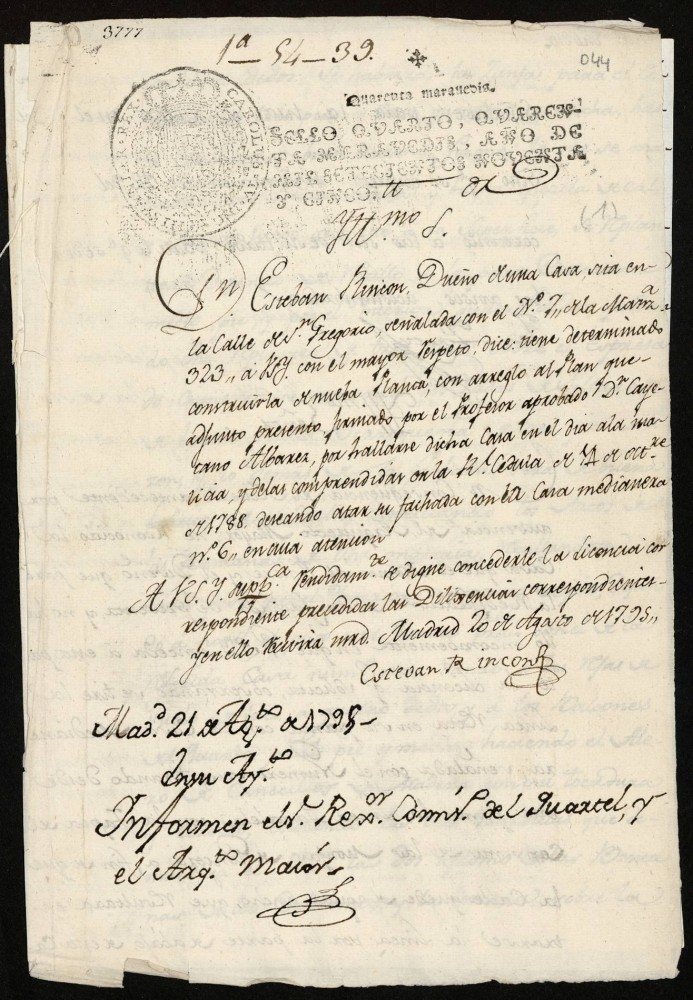 3777
1ª-54-39.
044
Quarenta maravedis.
SELLO QVARTO, QVAREN-
TA MARAVEDIS, AÑO DE
MIL SETECIENTOS NOVENTA
Y CINCO.
CAROLUS
HISPANIAR. REX
(1)
Yll.mo S.
Sn. Esteban Rincon, Dueño de una Casa, sita en-
la Calle de Sn. Gregorio, señalada con el Nº. 7,, de la Manza
323,, a VSY. con el mayor respeto, dice: tiene determinado
construirla de nueba Planta, con arreglo al Plan que-
adjunto presento, firmado por el Profesor aprobado Dn. Caye-
tano Albarez, por hallarse dicha Casa en el dia a la ma-
licia, y de las comprendidas en la Rl. Cedula de 14 de Octre
de 1788. deseando atar su fachada con la Casa medianera
nº. 6,, en cuia atencion
A VS. Y. supbca rendidamte se digne concederle la Licencia cor
respondiente precedidas las Diligencias correspondientes-
y en ello recivirá mrd. Madrid 20 de Agosto de 1795,,
Estevan Rincon
Madd. 21 de Agto de 1795-
En su Ayto
Informen el Sr. Rexor. Comisº. del Quartel, y
el Arqto Maior